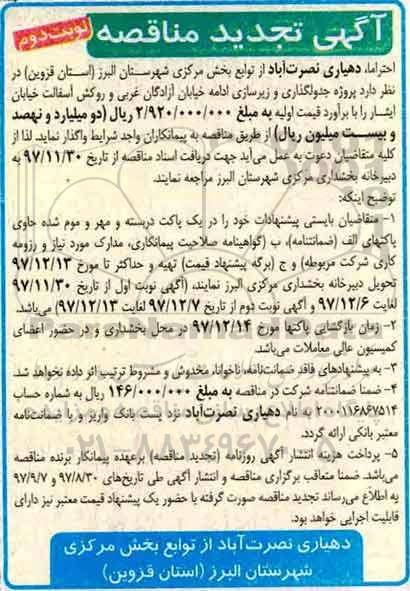 آگهی تجدید مناقصه
نوبت دوم
احتراما، دهیاری نصرت‌آباد از توابع بخش مرکزی شهرستان البرز (استان قزوین) در
نظر دارد پروژه جدولگذاری و زیرسازی ادامه خیابان آزادگان غربی و روکش آسفالت خیابان
ایشار را با برآورد قیمت اولیه به مبلغ ۲/۹۲۰/۰۰۰/۰۰۰ ریال (دو میلیارد و نهصد
و بیست میلیون ریال) از طریق مناقصه به پیمانکاران واجد شرایط واگذار نماید. لذا از
کلیه متقاضیان دعوت به عمل می‌آید جهت دریافت اسناد مناقصه از تاریخ ۹۷/۱۱/۳۰ به
دبیرخانه بخشداری مرکزی شهرستان البرز مراجعه نمایند.
توضیح اینکه:
۱- متقاضیان بایستی پیشنهادات خود را در یک پاکت دربسته و مهر و موم شده حاوی
پاکتهای الف (ضمانتنامه)، ب (گواهینامه صلاحیت پیمانکاری، مدارک مورد نیاز و رزومه
کاری شرکت مربوطه) و ج (برگه پیشنهاد قیمت) تهیه و حداکثر تا مورخ ۹۷/۱۲/۱۳
تحویل دبیرخانه بخشداری مرکزی البرز نمایند، (آگهی نوبت اول از تاریخ ۹۷/۱۱/۳۰
لغایت ۹۷/۱۲/۶ و آگهی نوبت دوم از تاریخ ۹۷/۱۲/۷ لغایت ۹۷/۱۲/۱۳) می‌باشد.
۲- زمان بازگشایی پاکتها مورخ ۹۷/۱۲/۱۴ در محل بخشداری و در حضور اعضای
کمیسیون عالی معاملات می‌باشد.
۳- به پیشنهادهای فاقد ضمانت‌نامه، ناخوانا، مخدوش و مشروط ترتیب اثر داده نخواهد شد.
۴- ضمنا ضمانتنامه شرکت در مناقصه به مبلغ ۱۴۶/۰۰۰/۰۰۰ ریال به شماره حساب
۲۰۰۰۱۱۶۸۶۷۵۱۴ به نام دهیاری نصرت‌آباد نزد پست بانک واریز و یا ضمانت‌نامه
معتبر بانکی ارائه گردد.
۵- پرداخت هزینه انتشار آگهی روزنامه (تجدید مناقصه) برعهده پیمانکار برنده مناقصه
می‌باشد. ضمنا متعاقب برگزاری مناقصه و انتشار آگهی طی تاریخ‌های ۹۷/۸/۳۰ و ۹۷/۹/۷
به اطلاع می‌رساند تجدید مناقصه صورت گرفته با حضور یک پیشنهاد قیمت معتبر نیز دارای
قابلیت اجرایی خواهد بود.
دهیاری نصرت‌آباد از توابع بخش مرکزی
شهرستان البرز (استان قزوین)